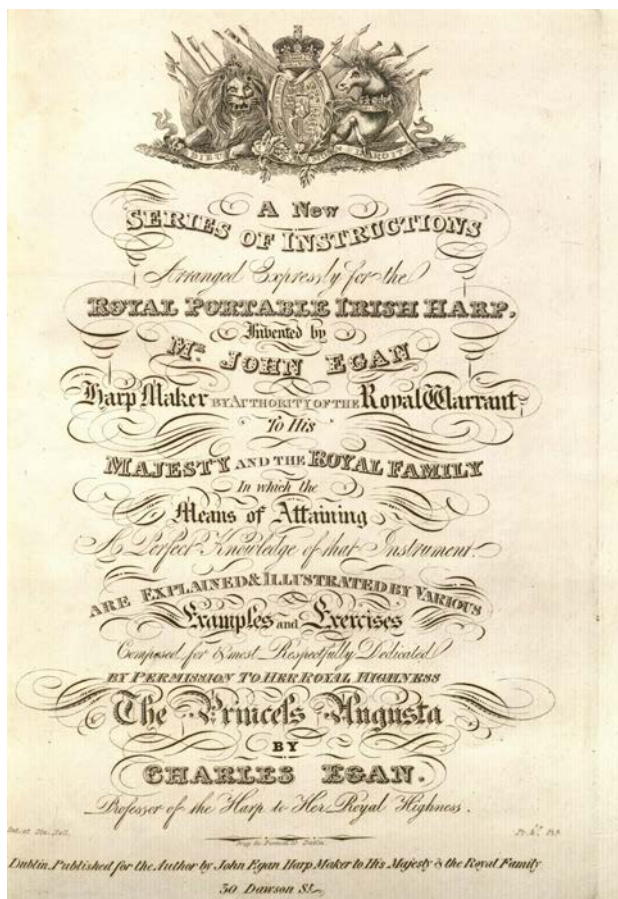 DIEU ET MON DROIT
A New
SERIES OF INSTRUCTIONS
Arranged Expressly for the
ROYAL PORTABLE IRISH HARP,
Invented by
Mr. JOHN EGAN
Harp Maker BY AUTHORITY OF THE Royal Warrant
To His
MAJESTY AND THE ROYAL FAMILY
In which the
Means of Attaining
A Perfect Knowledge of that Instrument
ARE EXPLAINED & ILLUSTRATED BY VARIOUS
Examples and Exercises
Composed for & most Respectfully Dedicated
BY PERMISSION TO HER ROYAL HIGHNESS
The Princeſs Augusta
BY
CHARLES EGAN.
Professor of the Harp to Her Royal Highness.
Ent. at Sta. Hall.
Dublin. Published for the Author by John Egan Harp Maker to His Majesty & the Royal Family
30 Dawson St.